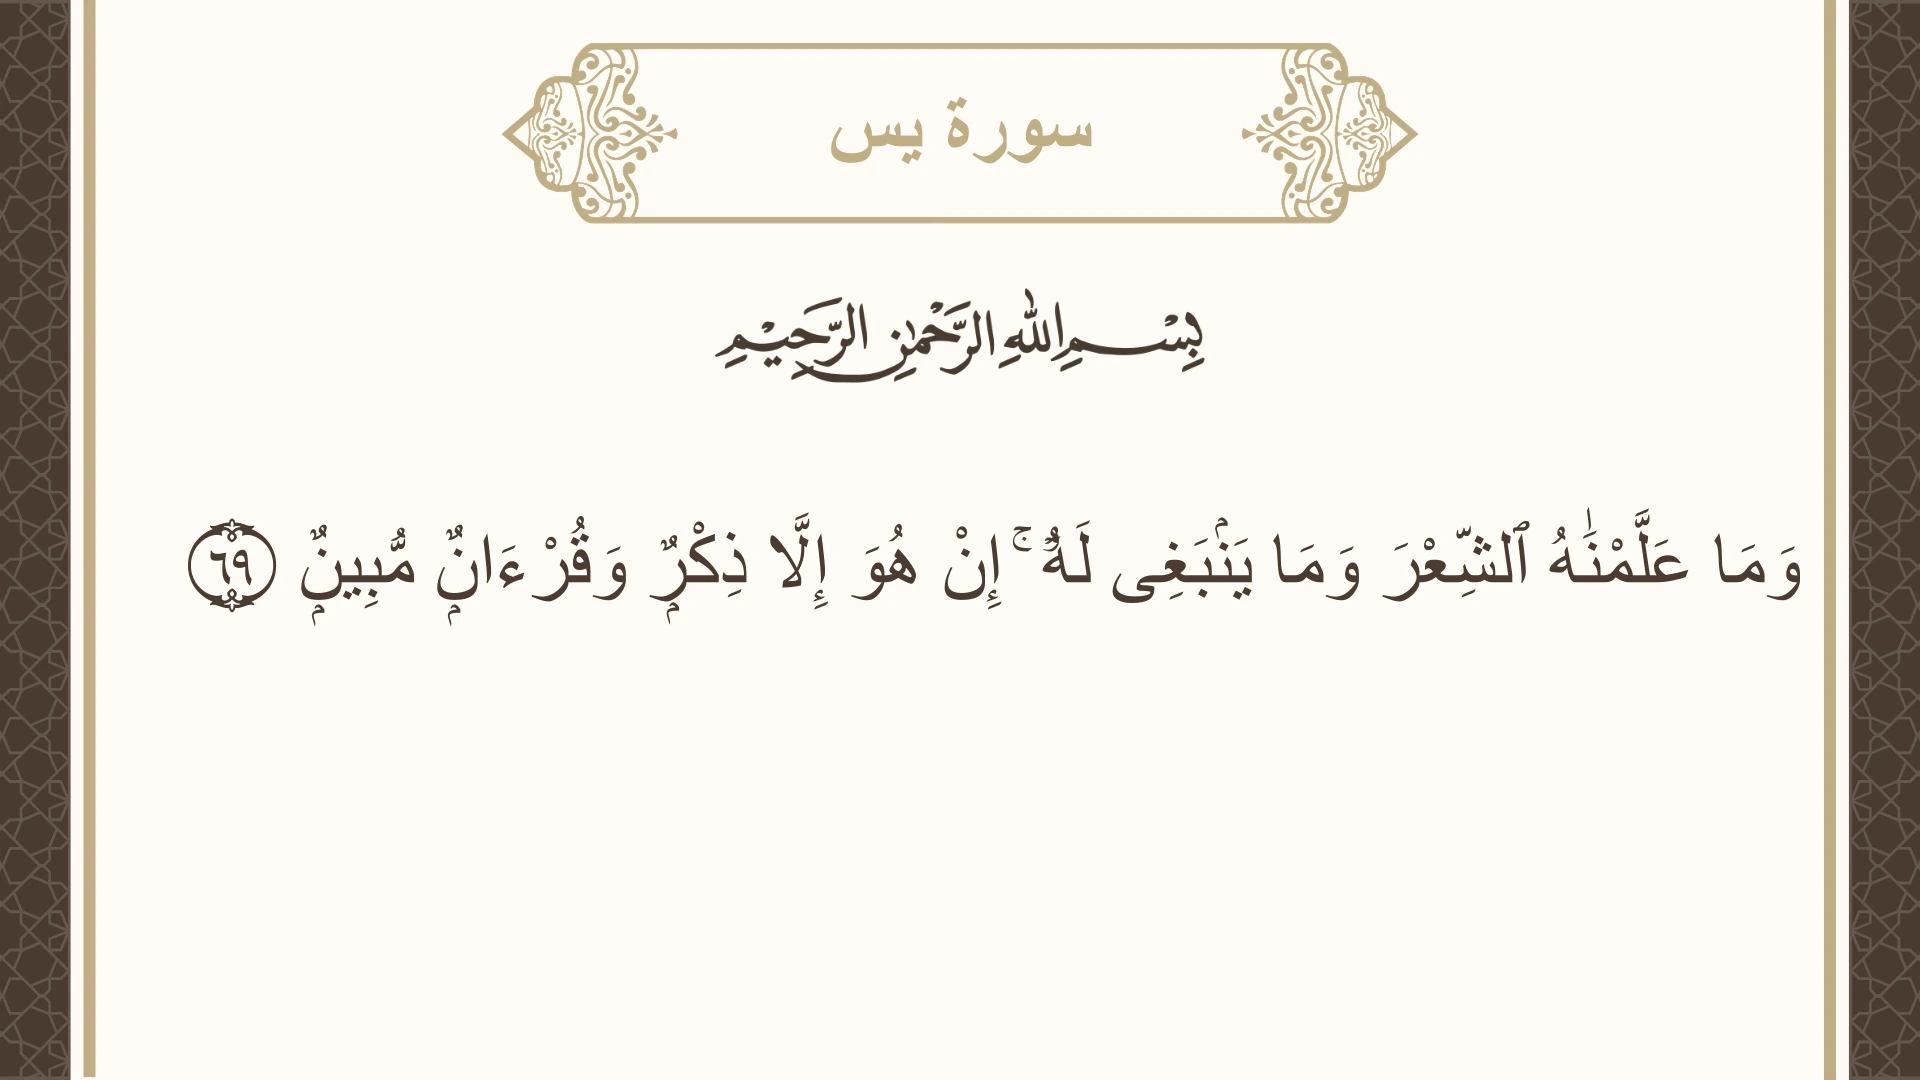 سورة يس
بِسْمِ اللهِ الرَّحْمٰنِ الرَّحِيْمِ
وَمَا عَلَّمْنَٰهُ ٱلشِّعْرَ وَمَا يَنۢبَغِى لَهُۥٓ ۚ إِنْ هُوَ إِلَّا ذِكْرٌۭ وَقُرْءَانٌۭ مُّبِينٌۭ ٦٩